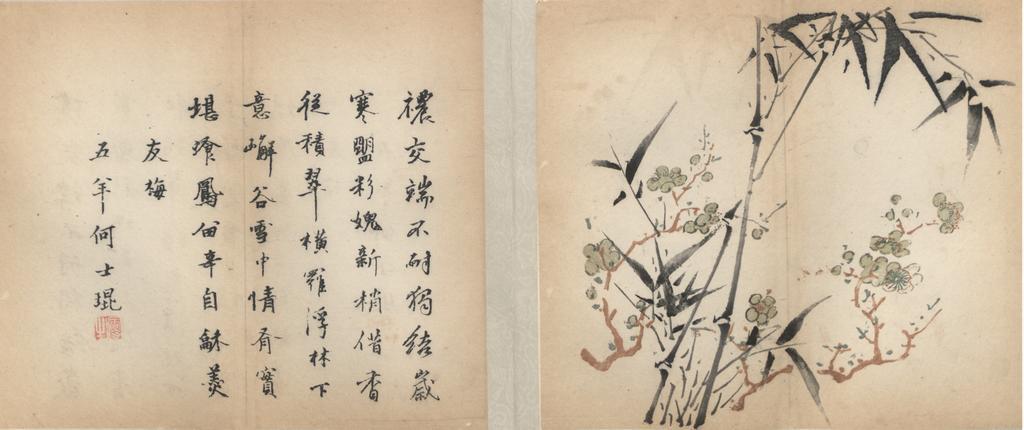 禯交端不耐獨結歲
寒盟彩媿新梢借香
從積翠橫羅浮林下
意嶰谷雪中情有實
堪飡鳳留辛自龢羹
友梅
五羊何士琨